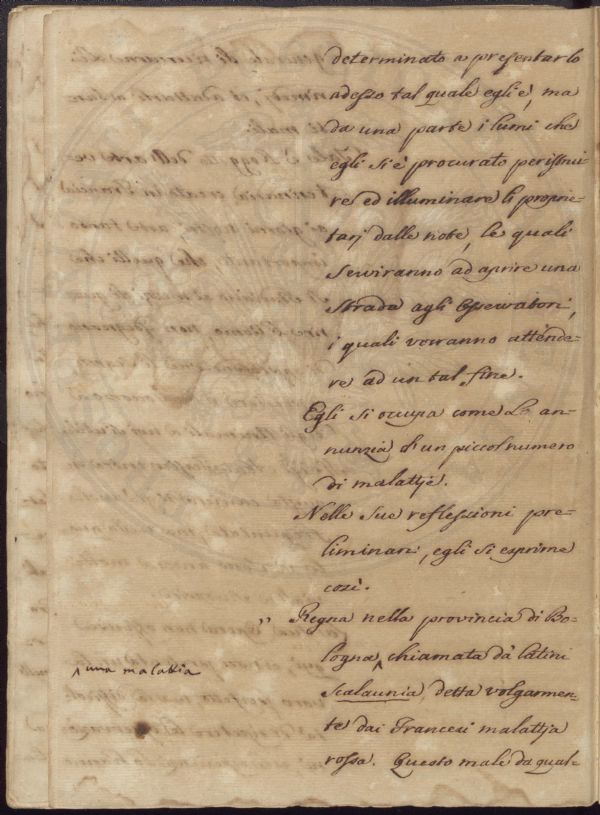 determinato a presentarlo
adesso tal quale egli é, ma
da una parte i lumi che
egli si é procurato per istrui-
re ed illuminare li proprie-
tarj dalle note, le quali
serviranno ad aprire una
strada agli Osservatori,
i quali vorranno attende-
re ad un tal fine.
Egli si occupa come Lo an-
nunzia d'un piccol numero
di malattje.
Nelle sue reflessioni pre-
liminari, egli si esprime
così.
" Regna nella provincia di Bo-
logna ^ chiamata dà latini
^ una malatia
Scalaunia, detta volgarmen-
te dai Francesi malattja
rossa. Questo male da qual-